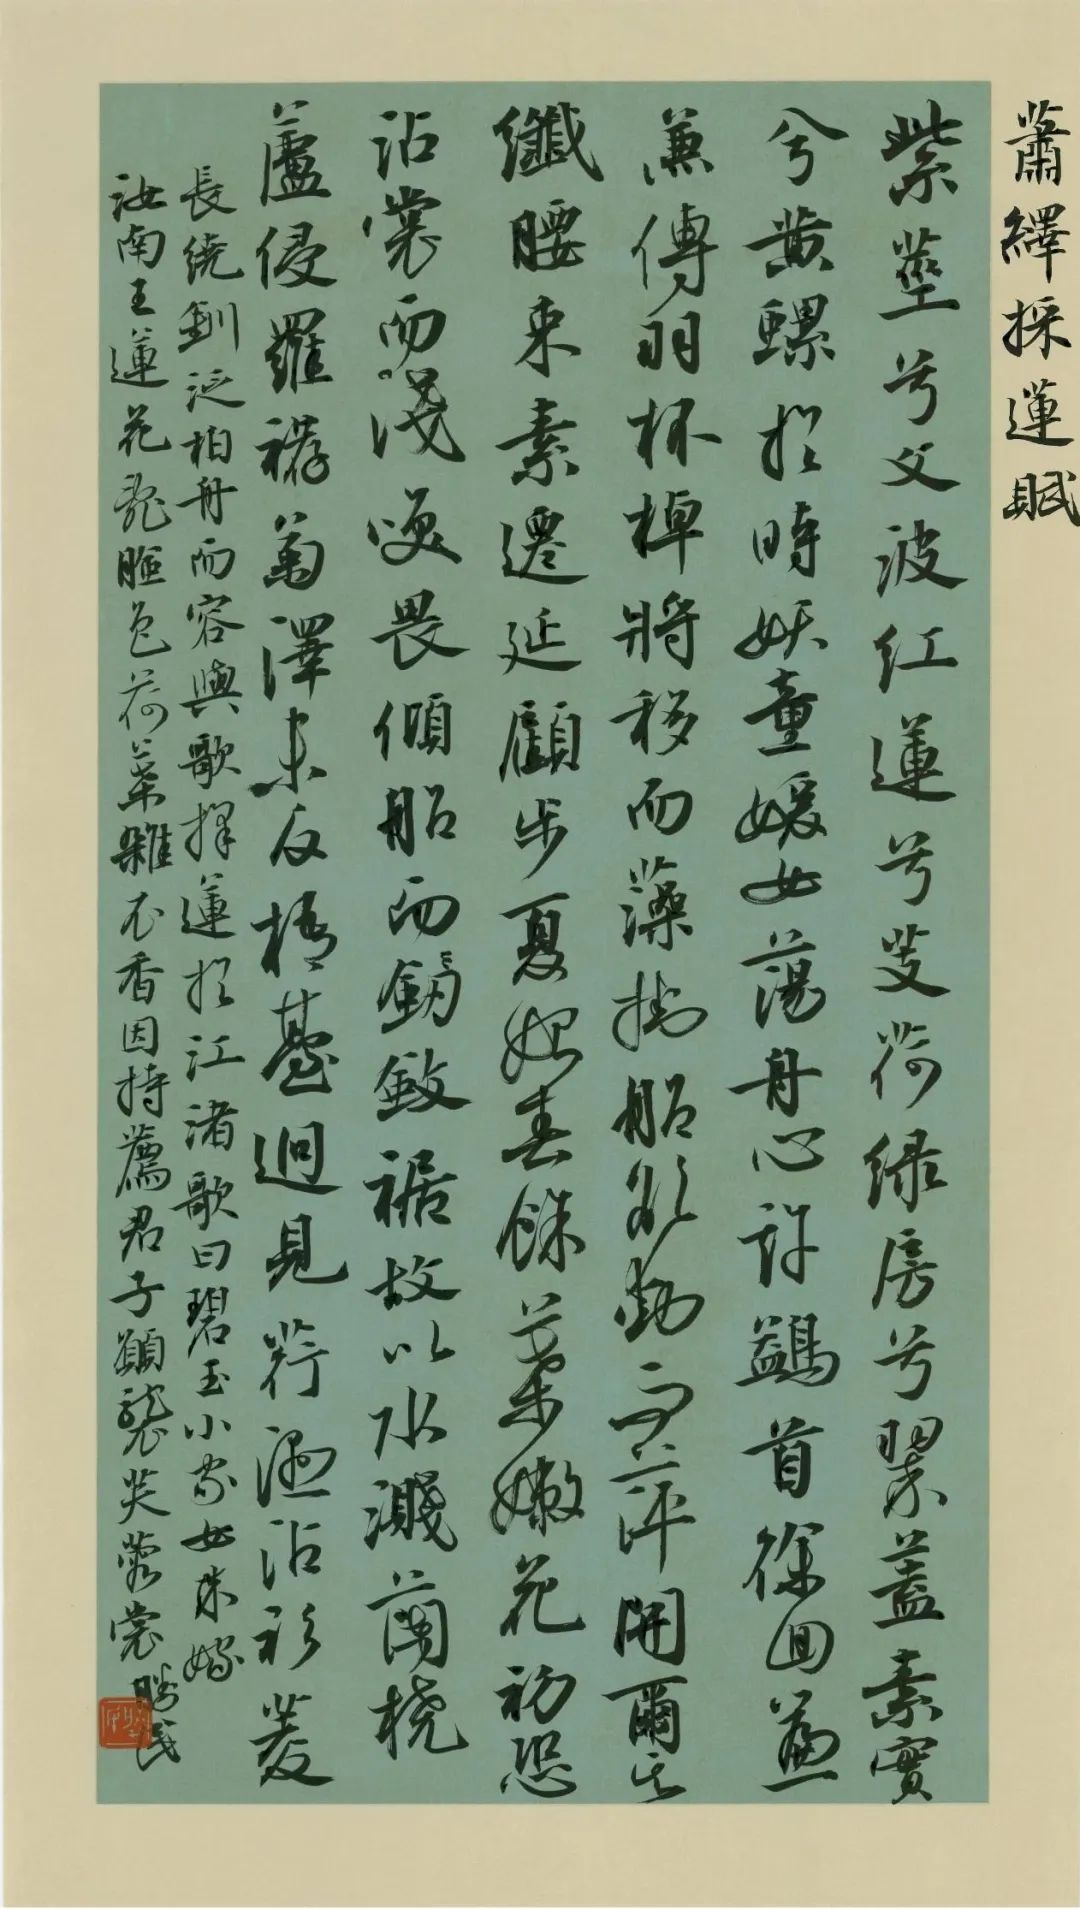 蕭繹採蓮賦
紫莖兮文波紅蓮兮芰荷綠房兮翠蓋素實
兮黃螺於時妖童媛女蕩舟心許鷁首徐回
兼傳羽杯棹將移而藻掛船欲動而萍開爾其
纖腰束素遷延顧步夏始春餘葉嫩花初恐
沾裳而淺笑畏傾船而斂裾故以水濺蘭橈
蘆侵羅褠菊澤未反梧臺迥見荇濕沾衫菱
長繞釧泛柏舟而容與歌採蓮於江渚歌曰碧玉小家女來嫁
汝南王蓮花亂臉色荷葉雜衣香因持薦君子願襲芙蓉裳
勝民